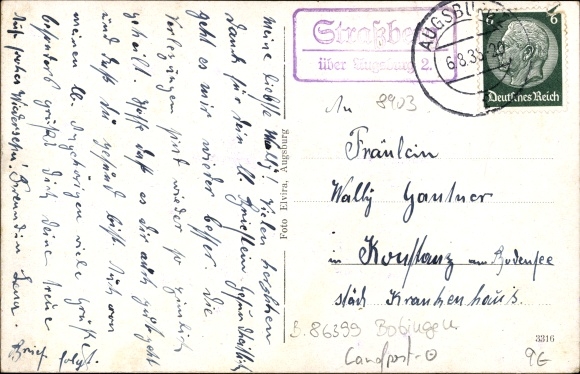 Meine liebste Wally! Vielen herzlichen
Dank für dein lb. Brieflein. Gesundheitlich
geht es mir wieder besser. Die
Verletzungen sind wieder so ziemlich
geheilt. Hoffe daß es dir auch gut geht
und daß du gesund bist. Auch von
meinen lb. Angehörigen viele Grüße.
besonders grüßt dich deine treue
Freundin Lena.
Auf frohes Wiedersehn!
Brief folgt.
Foto Elvira, Augsburg
Straßbe
über Augsburg 2.
AUGSBU
6.8.35
6 6
Deutsches Reich
An 8903
Fräulein
Wally Gantner
in Konstanz am Bodensee
städt. Krankenhaus.
B. 86399 Bobingen
Landpost-O
3316
9€